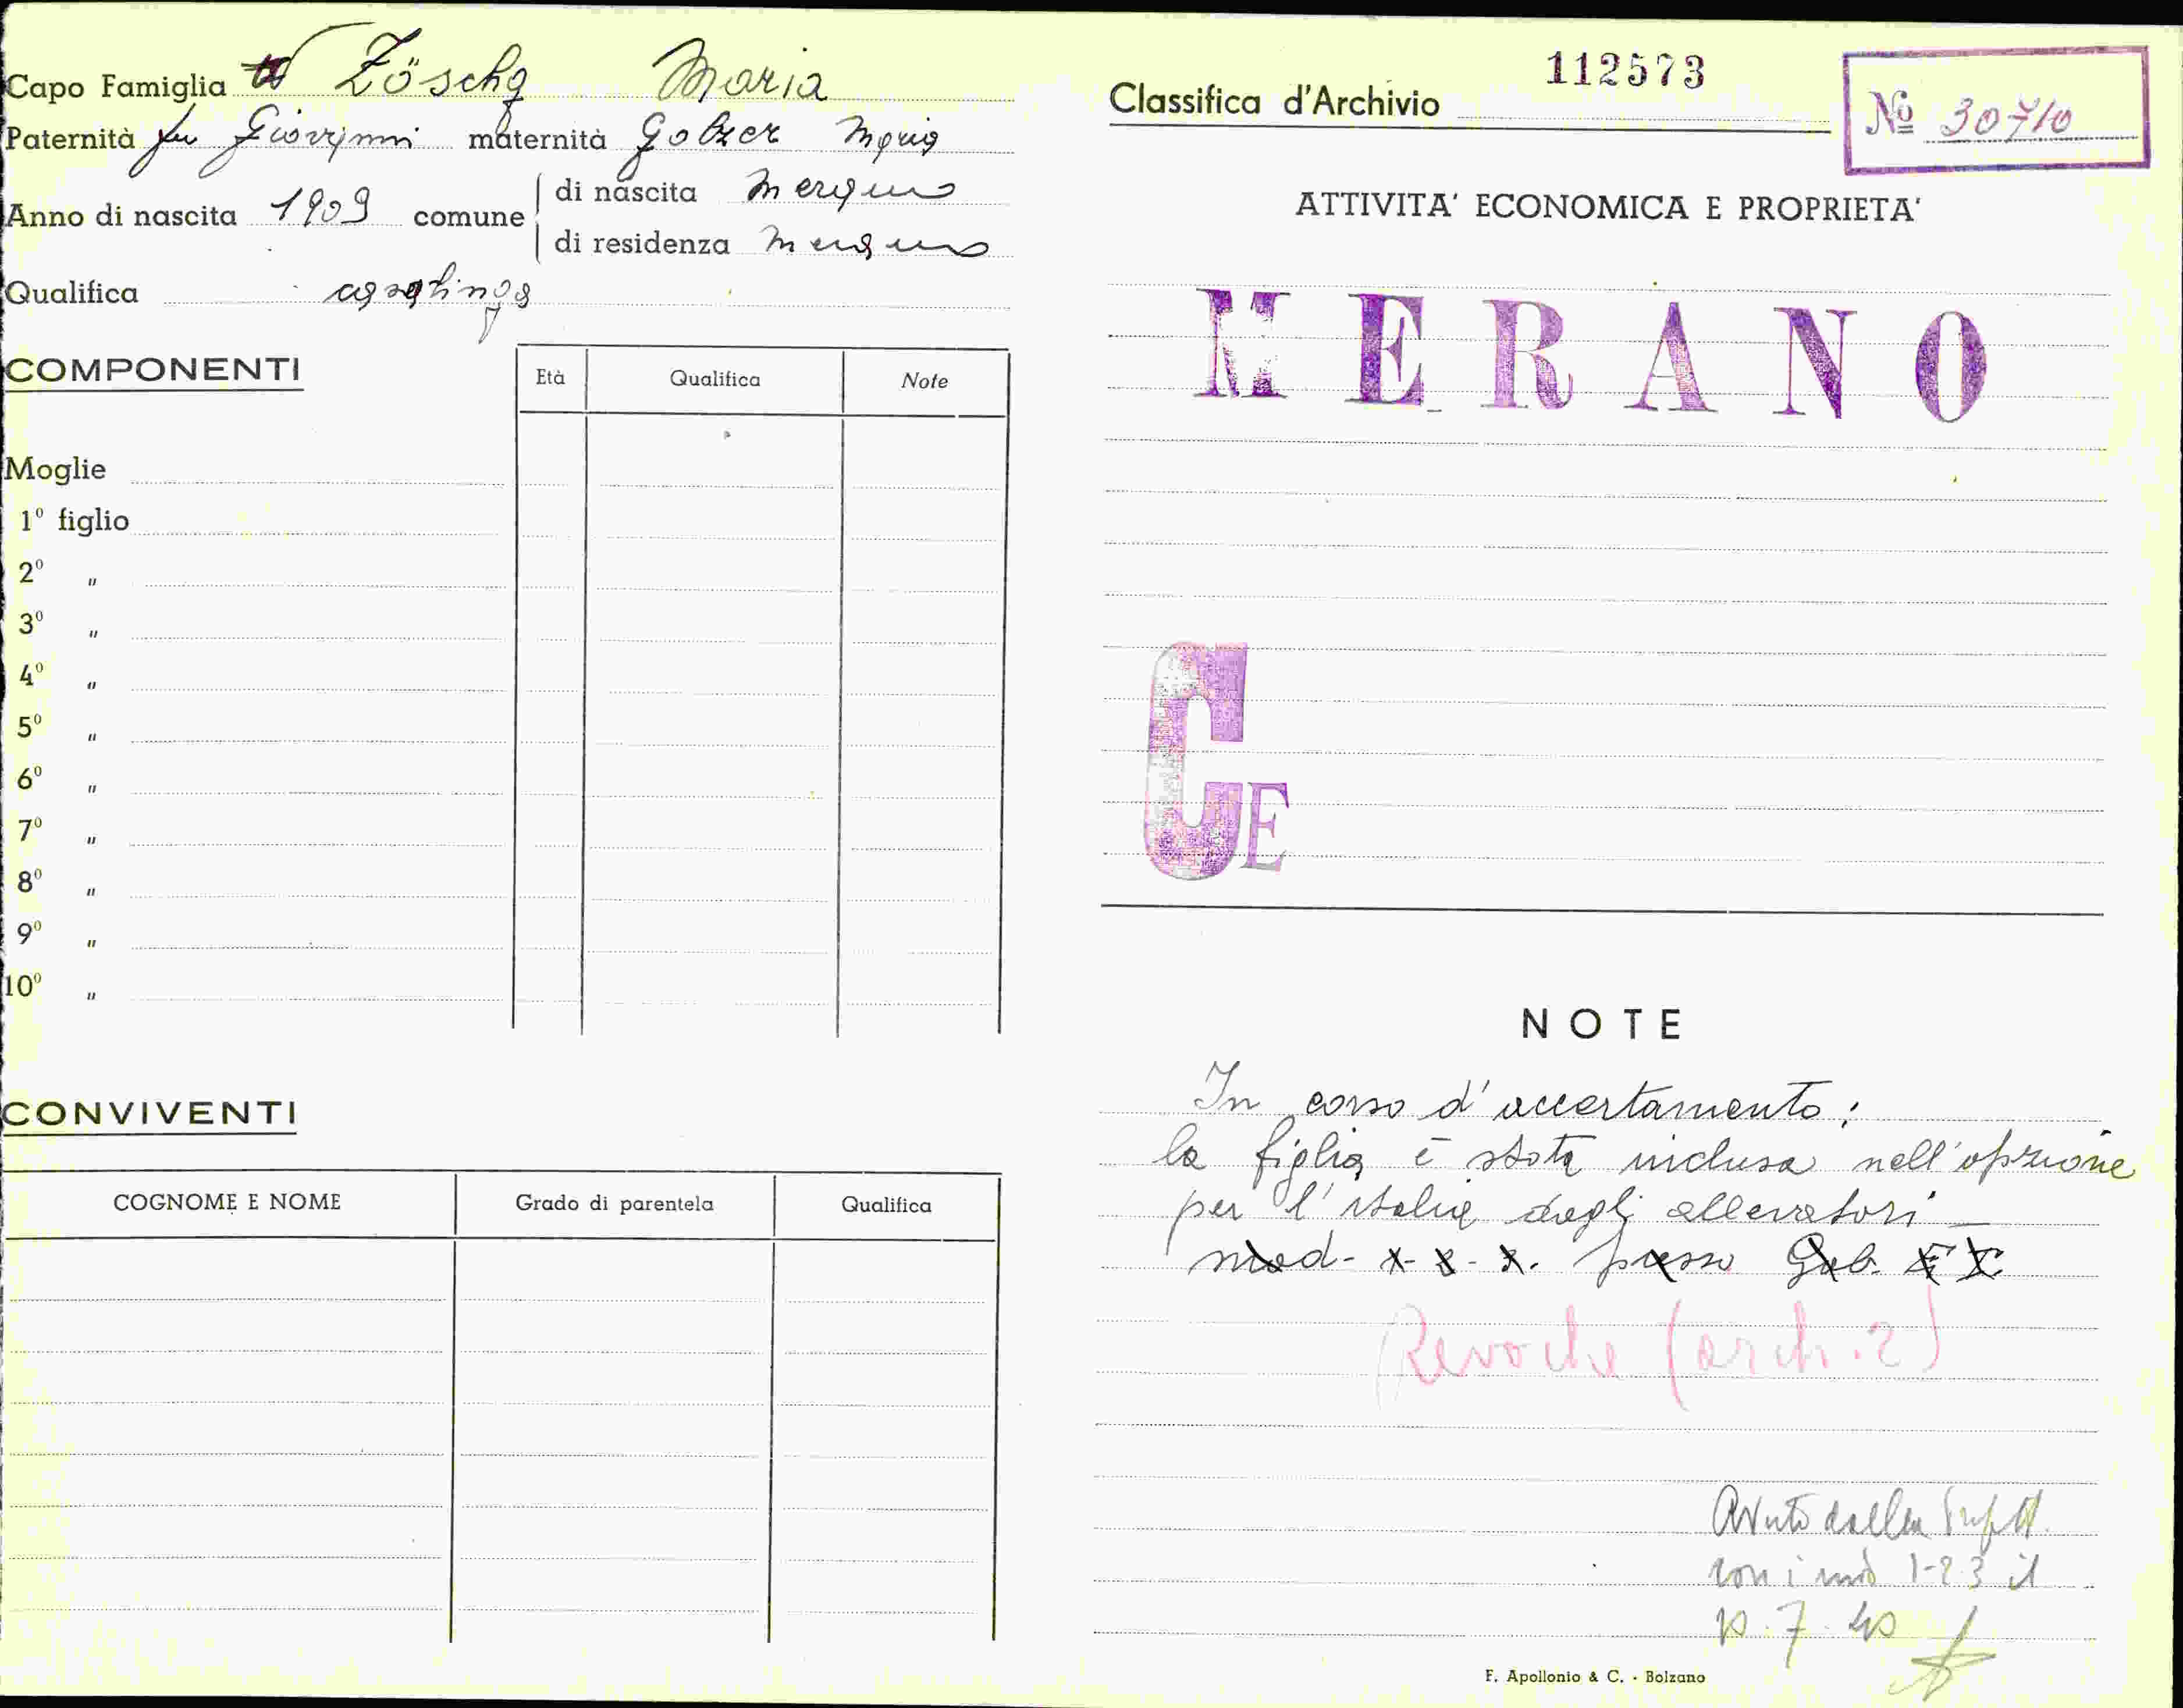 Capo Famiglia Zöschg Maria
Paternità fu Giovanni maternità Golser Maria
Anno di nascita 1909 comune di nascita Merano
di residenza Merano
Qualifica casalinga
COMPONENTI
Età Qualifica Note
Moglie
1° figlio
2° "
3° "
4° "
5° "
6° "
7° "
8° "
9° "
10° "
CONVIVENTI
COGNOME E NOME Grado di parentela Qualifica
Classifica d'Archivio 112573
Nº 30710
ATTIVITA' ECONOMICA E PROPRIETA'
MERANO
CE
NOTE
In corso d'accertamento;
la figlia è stata inclusa nell'opzione
per l'Italia degli allevatori —
mod- presso Gab.
Revoche (arch. 2)
Avuto dalla
con i mod 1-2-3 il
10.7.40
F. Apollonio & C. - Bolzano